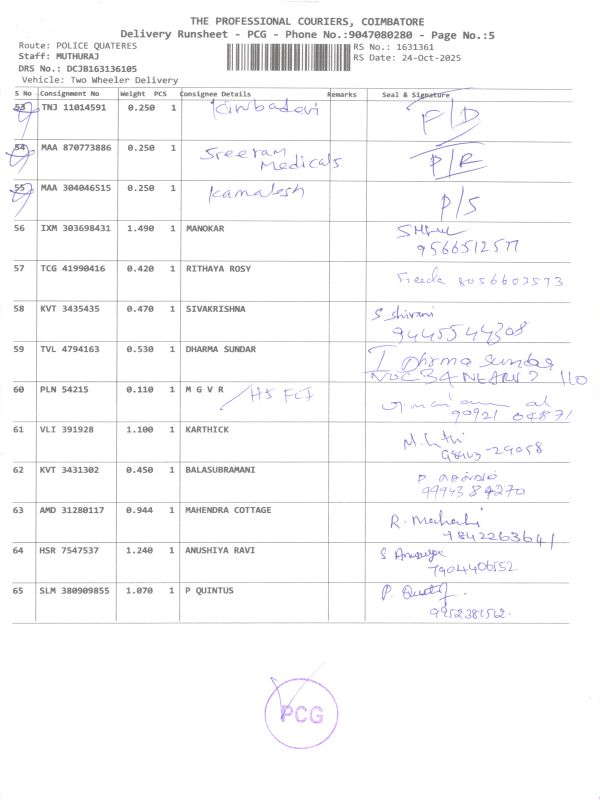 THE PROFESSIONAL COURIERS, COIMBATORE
Delivery Runsheet - PCG - Phone No.:9047080280 - Page No.:5
Route: POLICE QUATERES RS No.: 1631361
Staff: MUTHURAJ RS Date: 24-Oct-2025
DRS No.: DCJB163136105
Vehicle: Two Wheeler Delivery
S No Consignment No Weight PCS Consignee Details Remarks Seal & Signature
53 TNJ 11014591 0.250 1 F/D
54 MAA 870773886 0.250 1 Sreeram Medicals P/R
55 MAA 304046515 0.250 1 Kamalesh P/S
56 IXM 303698431 1.490 1 MANOKAR
9566512577
57 TCG 41990416 0.420 1 RITHAYA ROSY Freeda 8056603573
58 KVT 3435435 0.470 1 SIVAKRISHNA S. Shivani
9445544308
59 TVL 4794163 0.530 1 DHARMA SUNDAR I Dharma Sundar
60 PLN 54215 0.110 1 M G V R
90921 04871
61 VLI 391928 1.100 1 KARTHICK
62 KVT 3431302 0.450 1 BALASUBRAMANI
9994384270
63 AMD 31280117 0.944 1 MAHENDRA COTTAGE
7842263641
64 HSR 7547537 1.240 1 ANUSHIYA RAVI
7904406552
65 SLM 380909855 1.070 1 P QUINTUS
9952381562.
PCG